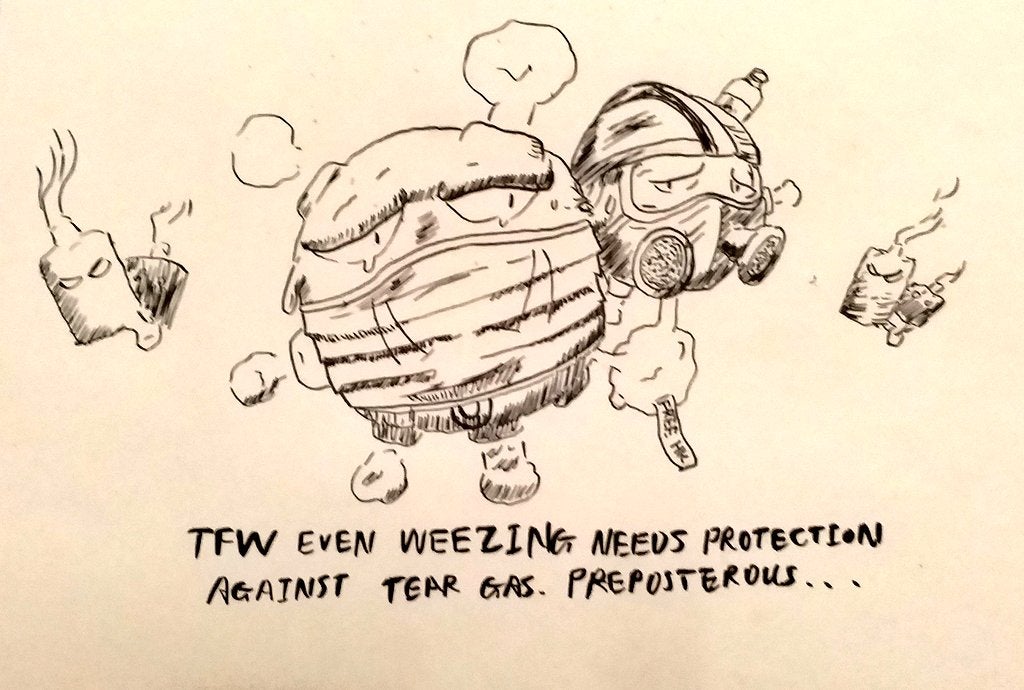 FREE HK
TFW EVEN WEEZING NEEDS PROTECTION
AGAINST TEAR GAS. PREPOSTEROUS...